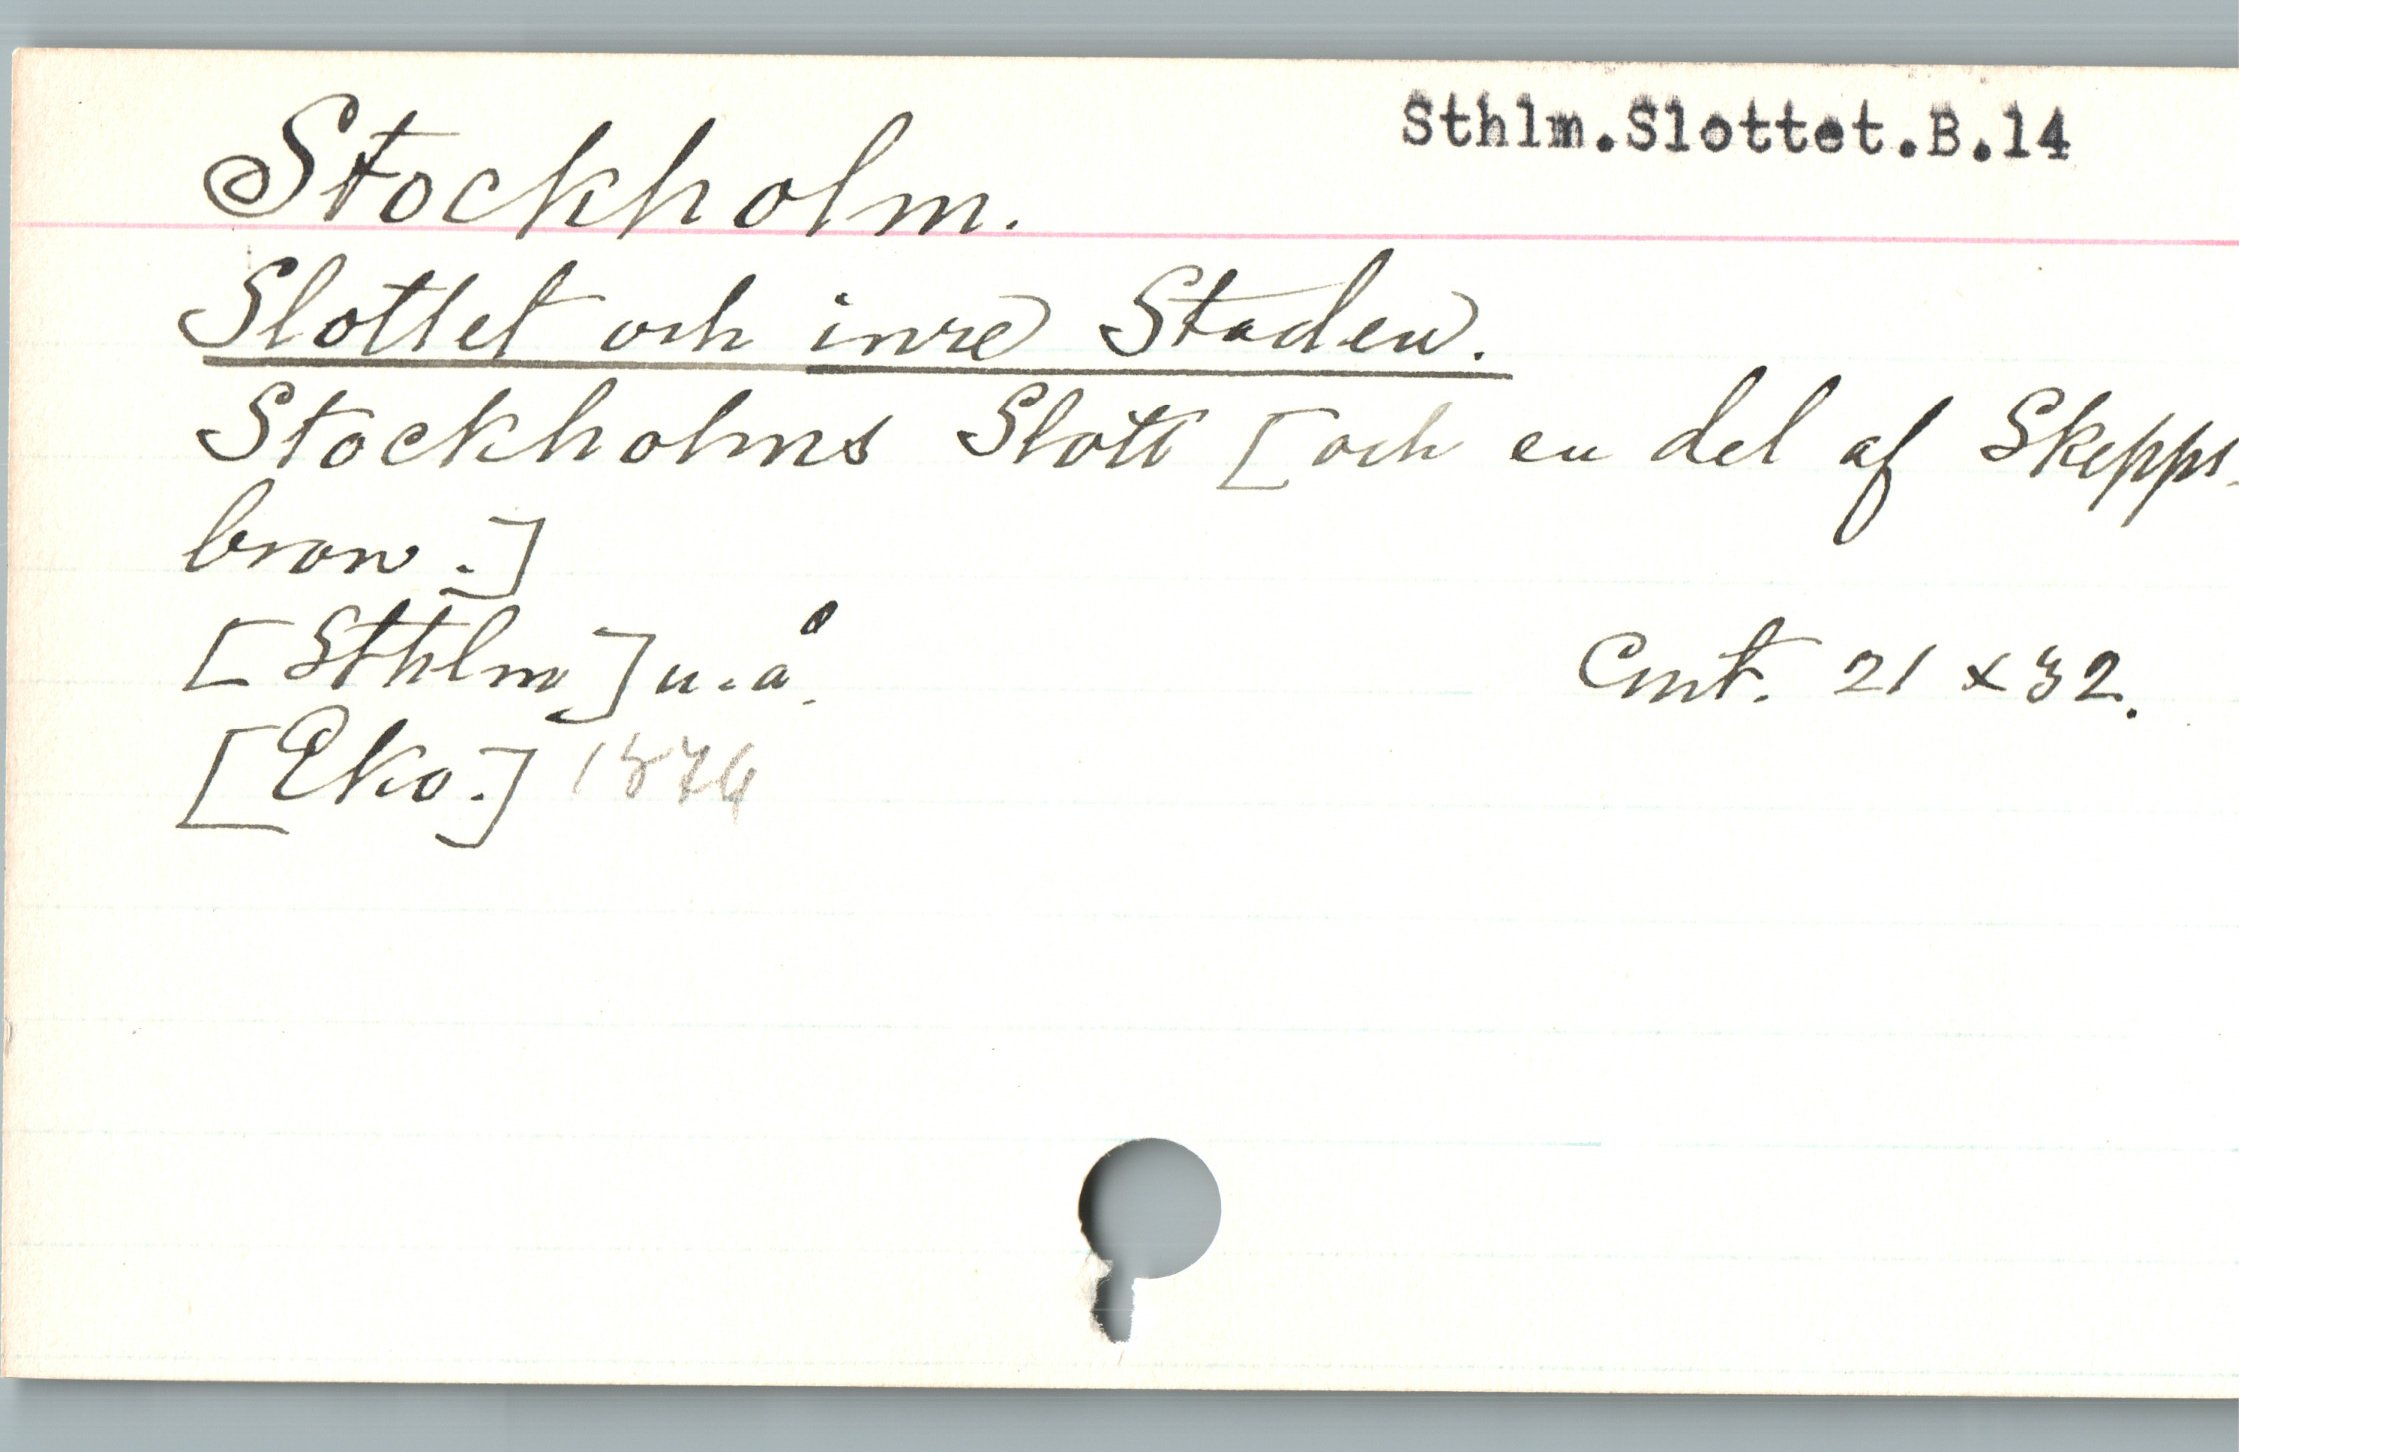 Sthlm.Slottet.B.14
Stockholm.
Slottet och inre Staden.
Stockholms Slott [och en del af Skepps-
bron.]
[Sthlm] u.å.
Cmt. 21 x 32.
[Eko.] 1874